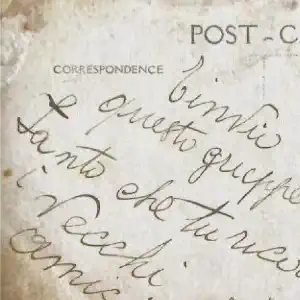 POST-C
CORRESPONDENCE
t'invio
questo gruppe
tanto che tu rico
i vecchi
amic